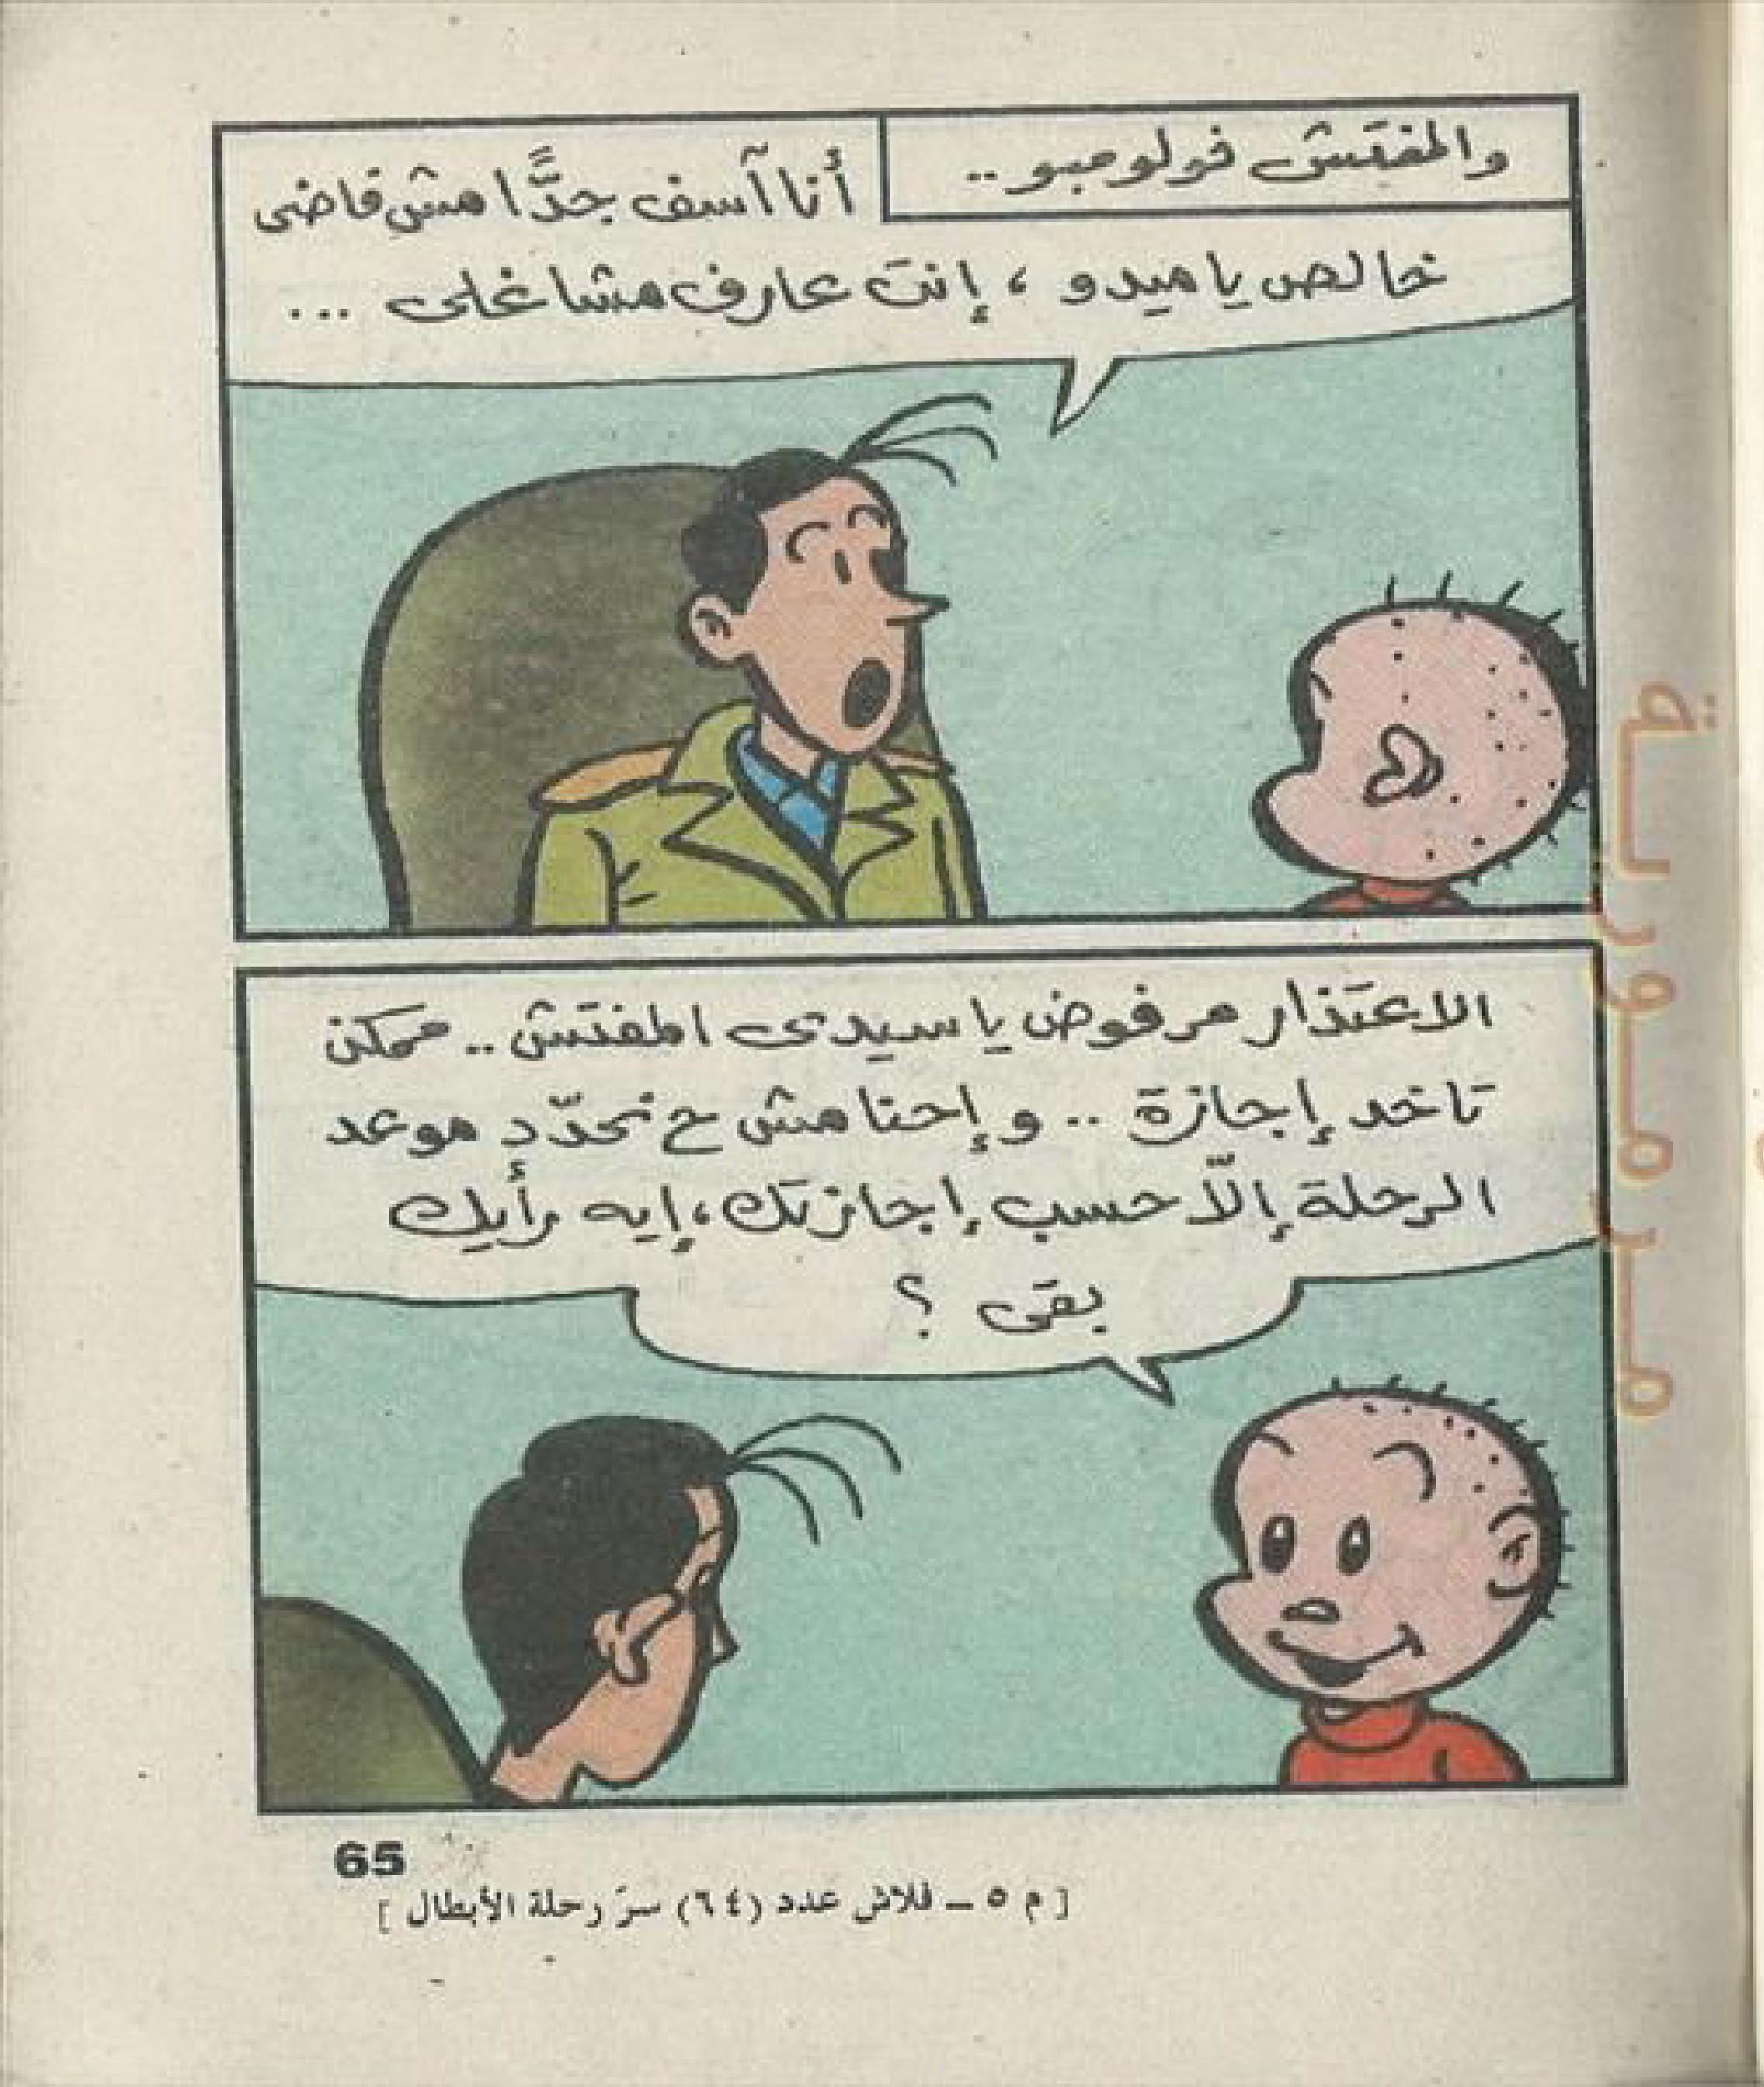 والمفتش فولومبو..
أنا آسف جدًّا مش فاضى
خالص يا ميدو ، إنت عارف مشاغلى ...
الاعتذار مرفوض يا سيدى المفتش .. ممكن
تاخد إجازة .. وإحنا مش ح نحدّد موعد
الرحلة إلاّ حسب إجازتك ، إيه رأيك
بقى ؟
65
[ م ٥ ــ فلاش عدد (٦٤) سرّ رحلة الأبطال ]